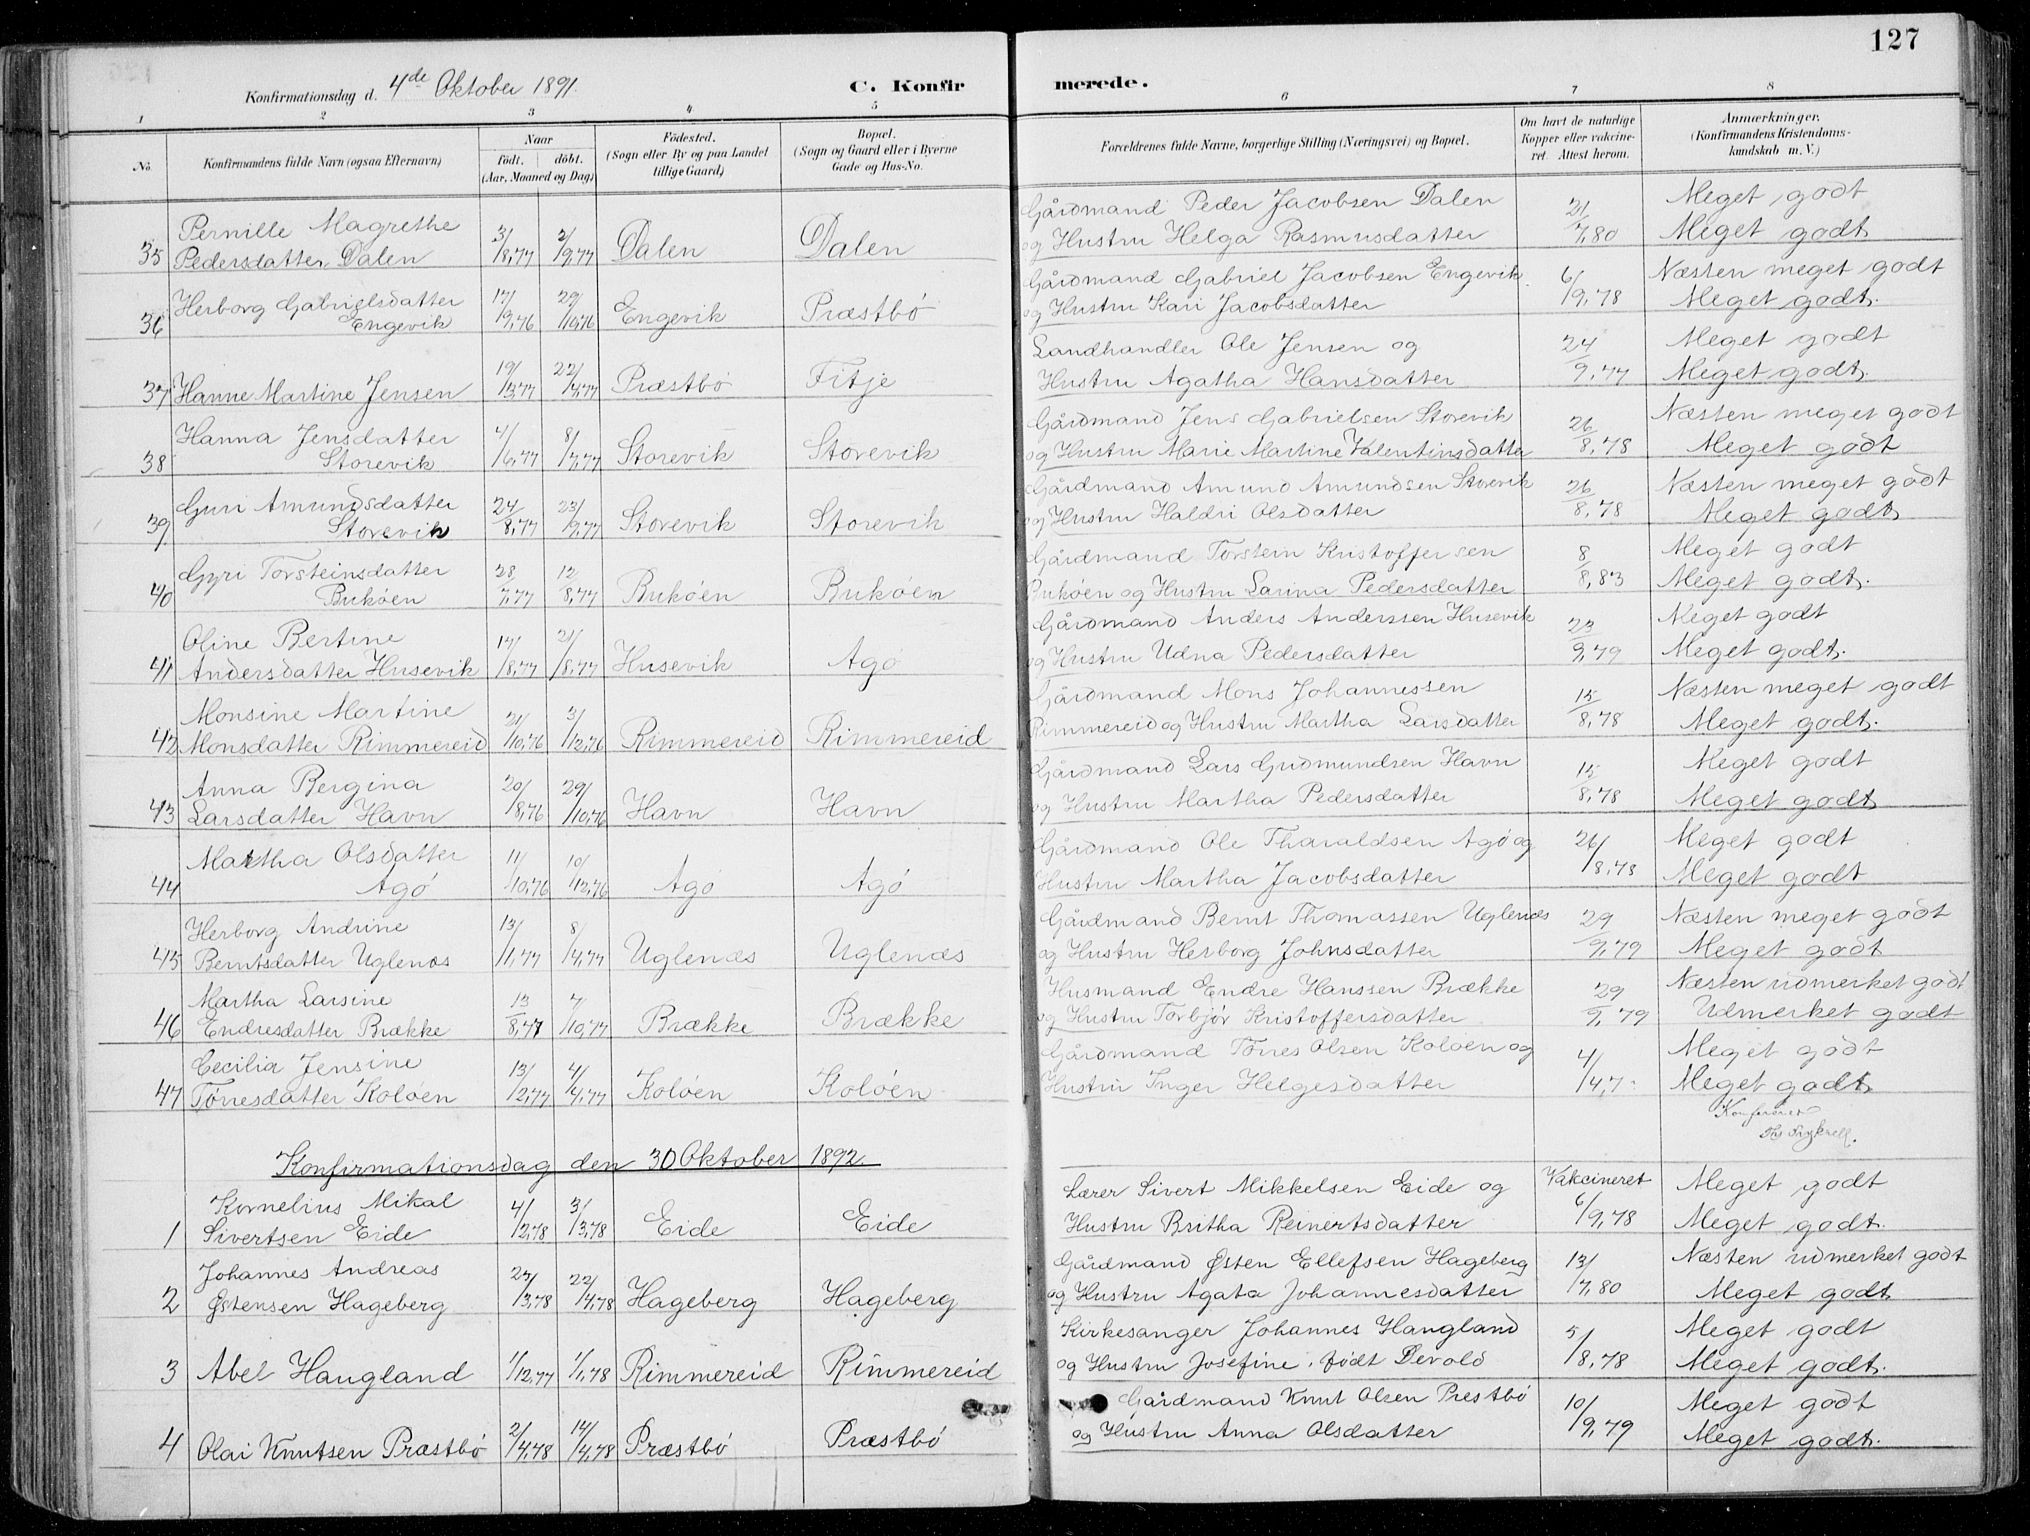 127
Konfirmationsdag d. 4de Oktober 1891.
C. Konfirmerede.
1 2 3 4 5 6 7 8
No. Konfirmandens fulde Navn (ogsaa Efternavn) Naar født. døbt. (Aar, Maaned og Dag) Födested. (Sogn eller By og paa Landet tillige Gaard) Bopæl. (Sogn og Gaard eller i Byerne Gade og Hus-No. Forældrenes fulde Navne, borgerlige Stilling (Næringsvei) og Bopæl. Om havt de naturlige Kopper eller vakcineret. Attest herom. Anmærkninger. (Konfirmandens Kristendomskundskab m. V.)
Pernille Magrethe Gårdmand Peder Jacobsen Dalen Meget godt
35 Pedersdatter Dalen 3/8,77 2/9,77 Dalen Dalen og Hustru Helga Rasmusdatter 21/7,80 Meget godt
Herborg Gabrielsdatter Gårdmand Gabriel Jacobsen Engevik Næsten meget godt
36 Engevik 17/9,76 29/10,76 Engevik Præstbö og Hustru Kari Jacobsdatter 6/9,78 Meget godt.
Landhandler Ole Jensen og Meget godt
37 Hanne Martine Jensen 19/3,77 22/4,77 Præstbö Fitje Hustru Agatha Hansdatter 24/9,77 Meget godt.
Hanna Jensdatter Gårdmand Jens Gabrielsen Storevik Næsten meget godt
38 Storevik 4/6,77 8/7,77 Storevik Storevik og Hustru Marie Martine Valentinsdatter 26/8,78 Meget godt
Guri Amundsdatter Gårdmand Amund Amundsen Storevik Næsten meget godt
39 Storevik 24/8,77 23/9,77 Storevik Storevik og Hustru Haldri Olsdatter 26/8,78 Meget godt
Gyri Torsteinsdatter Gårdmand Torstein Kristoffersen Meget godt
40 Buköen 28/7,77 12/8,77 Buköen Buköen Buköen og Hustru Larina Pedersdatter 8/8,83 Meget godt.
Oline Bertine Gårdmand Anders Anderssen Husevik Meget godt
41 Andersdatter Husevik 17/8,77 21/8,77 Husevik Agö og Hustru Udna Pedersdatter 23/9,79 Meget godt.
Monsine Martine Gårdmand Mons Johannessen Næsten meget godt
42 Monsdatter Rimmereid 21/10,76 3/12,76 Rimmereid Rimmereid Rimmereid og Hustru Martha Larsdatter 15/8,78 Meget godt.
Anna Bergina Gårdmand Lars Gudmundsen Havn Meget godt
43 Larsdatter Havn 20/8,76 29/10,76 Havn Havn og Hustru Martha Pedersdatter 15/8,78 Meget godt
Martha Olsdatter Gårdmand Ole Tharaldsen Agö og Meget godt
44 Agö 11/10,76 10/12,76 Agö Agö Hustru Martha Jacobsdatter 26/8,78 Meget godt
Herborg Andrine Gårdmand Bernt Thomassen Uglenæs Næsten meget godt
45 Berntsdatter Uglenæs 13/1,77 8/4,77 Uglenæs Uglenæs og Hustru Herborg Johnsdatter 29/9,79 Meget godt
Martha Larsine Husmand Endre Hanssen Brække Næsten udmerket godt
46 Endresdatter Brække 13/8,77 7/10,77 Brække Brække og Hustru Torbjör Kristoffersdatter 29/9,79 Udmerket godt
Cecilia Jensine Gårdmand Törres Olsen Kolöen og Meget godt
47 Törresdatter Kolöen 13/2,77 4/4,77 Kolöen Kolöen Hustru Inger Helgesdatter 4/4,7 Meget godt
Konfirmationsdag den 30 Oktober 1892.
Kornelius Mikal Lærer Sivert Mikkelsen Eide og Vakcineret Meget godt
1 Sivertsen Eide 4/2,78 3/3,78 Eide Eide Hustru Britha Reinertsdatter 6/9,78 Meget godt.
Johannes Andreas Gårdmand Østen Ellefsen Hageberg 13/ Næsten udmerket godt
2 Østensen Hageberg 23/3,78 22/4,78 Hageberg Hageberg og Hustru Agata Johannesdatter 7,80 Meget godt
Kirkesanger Johannes Haugland Meget godt
3 Abel Haugland 1/12,77 1/1,78 Rimmereid Rimmereid og Hustru Josefine, födt Devold 5/8,78 Meget godt.
Gårdmand Knut Olsen Prestbö Meget godt
4 Olai Knutsen Præstbö 2/4,78 14/4,78 Præstbö Præstbö og Hustru Anna Olsdatter 10/9,79 Meget godt.